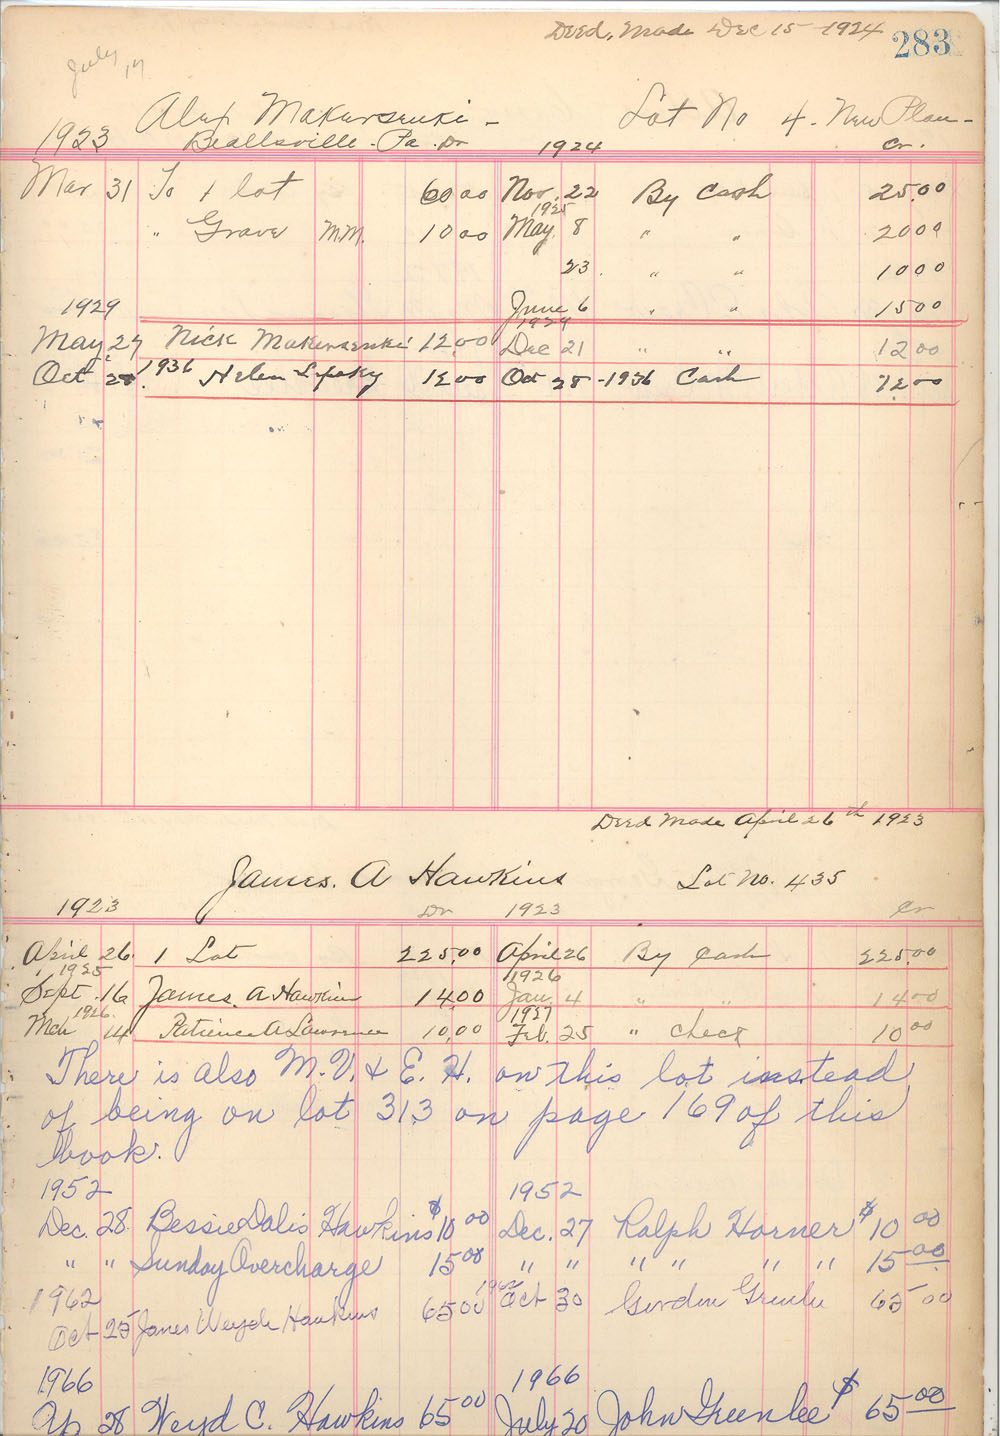 Deed, Made Dec 15 1924 283
July 17
Alex Makursenki - Lot No 4. New Plan -
1923 Beallsville. Pa. Dr 1924 Cr.
Mar 31 To 1 lot 60 00 Nov. 22 By Cash 25.00
1925
" Grave M.M. 10 00 May 8 " " 20 00
23. " " 10 00
1929 June 6 " " 15 00
1929
May 27 Nick Makursenki 12.00 Dec 21 " " 12 00
Oct 28. 1936 Helen Lipsky 12 00 Oct 28 - 1936 Cash 12.00
Deed Made April 26th 1923
James. A Hawkins Lot No. 435
1923 Dr 1923 Cr
April 26. 1 Lot 225.00 April 26 By Cash 225.00
1925 1926
Sept. 16 James. A Hawkins 14.00 Jan. 4 " " 14 00
1926. 1927
Mch 14 Patience A Lawrence 10.00 Feb. 25 " Check 10 00
There is also M.V. & E. H. on this lot instead
of being on lot 313 on page 169 of this
book.
1952 1952
Dec. 28 Bessie Dalis Hawkins $10 00 Dec. 27 Ralph Horner $10 00
" " Sunday Overcharge 15 00 " " " " " " 15 00
1962 1962
Oct 25 James Weyde Hawkins 65 00 Oct 30 Gordon Greenlee 65 00
1966 1966
Ap 28 Weyd C. Hawkins 65 00 July 20 John Greenlee $65 00